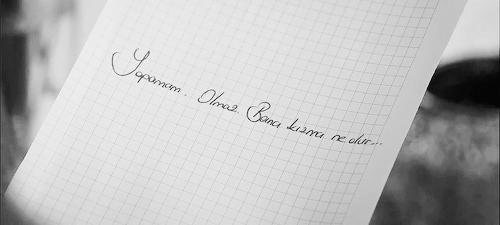 Yapamam. Olmaz. Bana kızma ne olur...